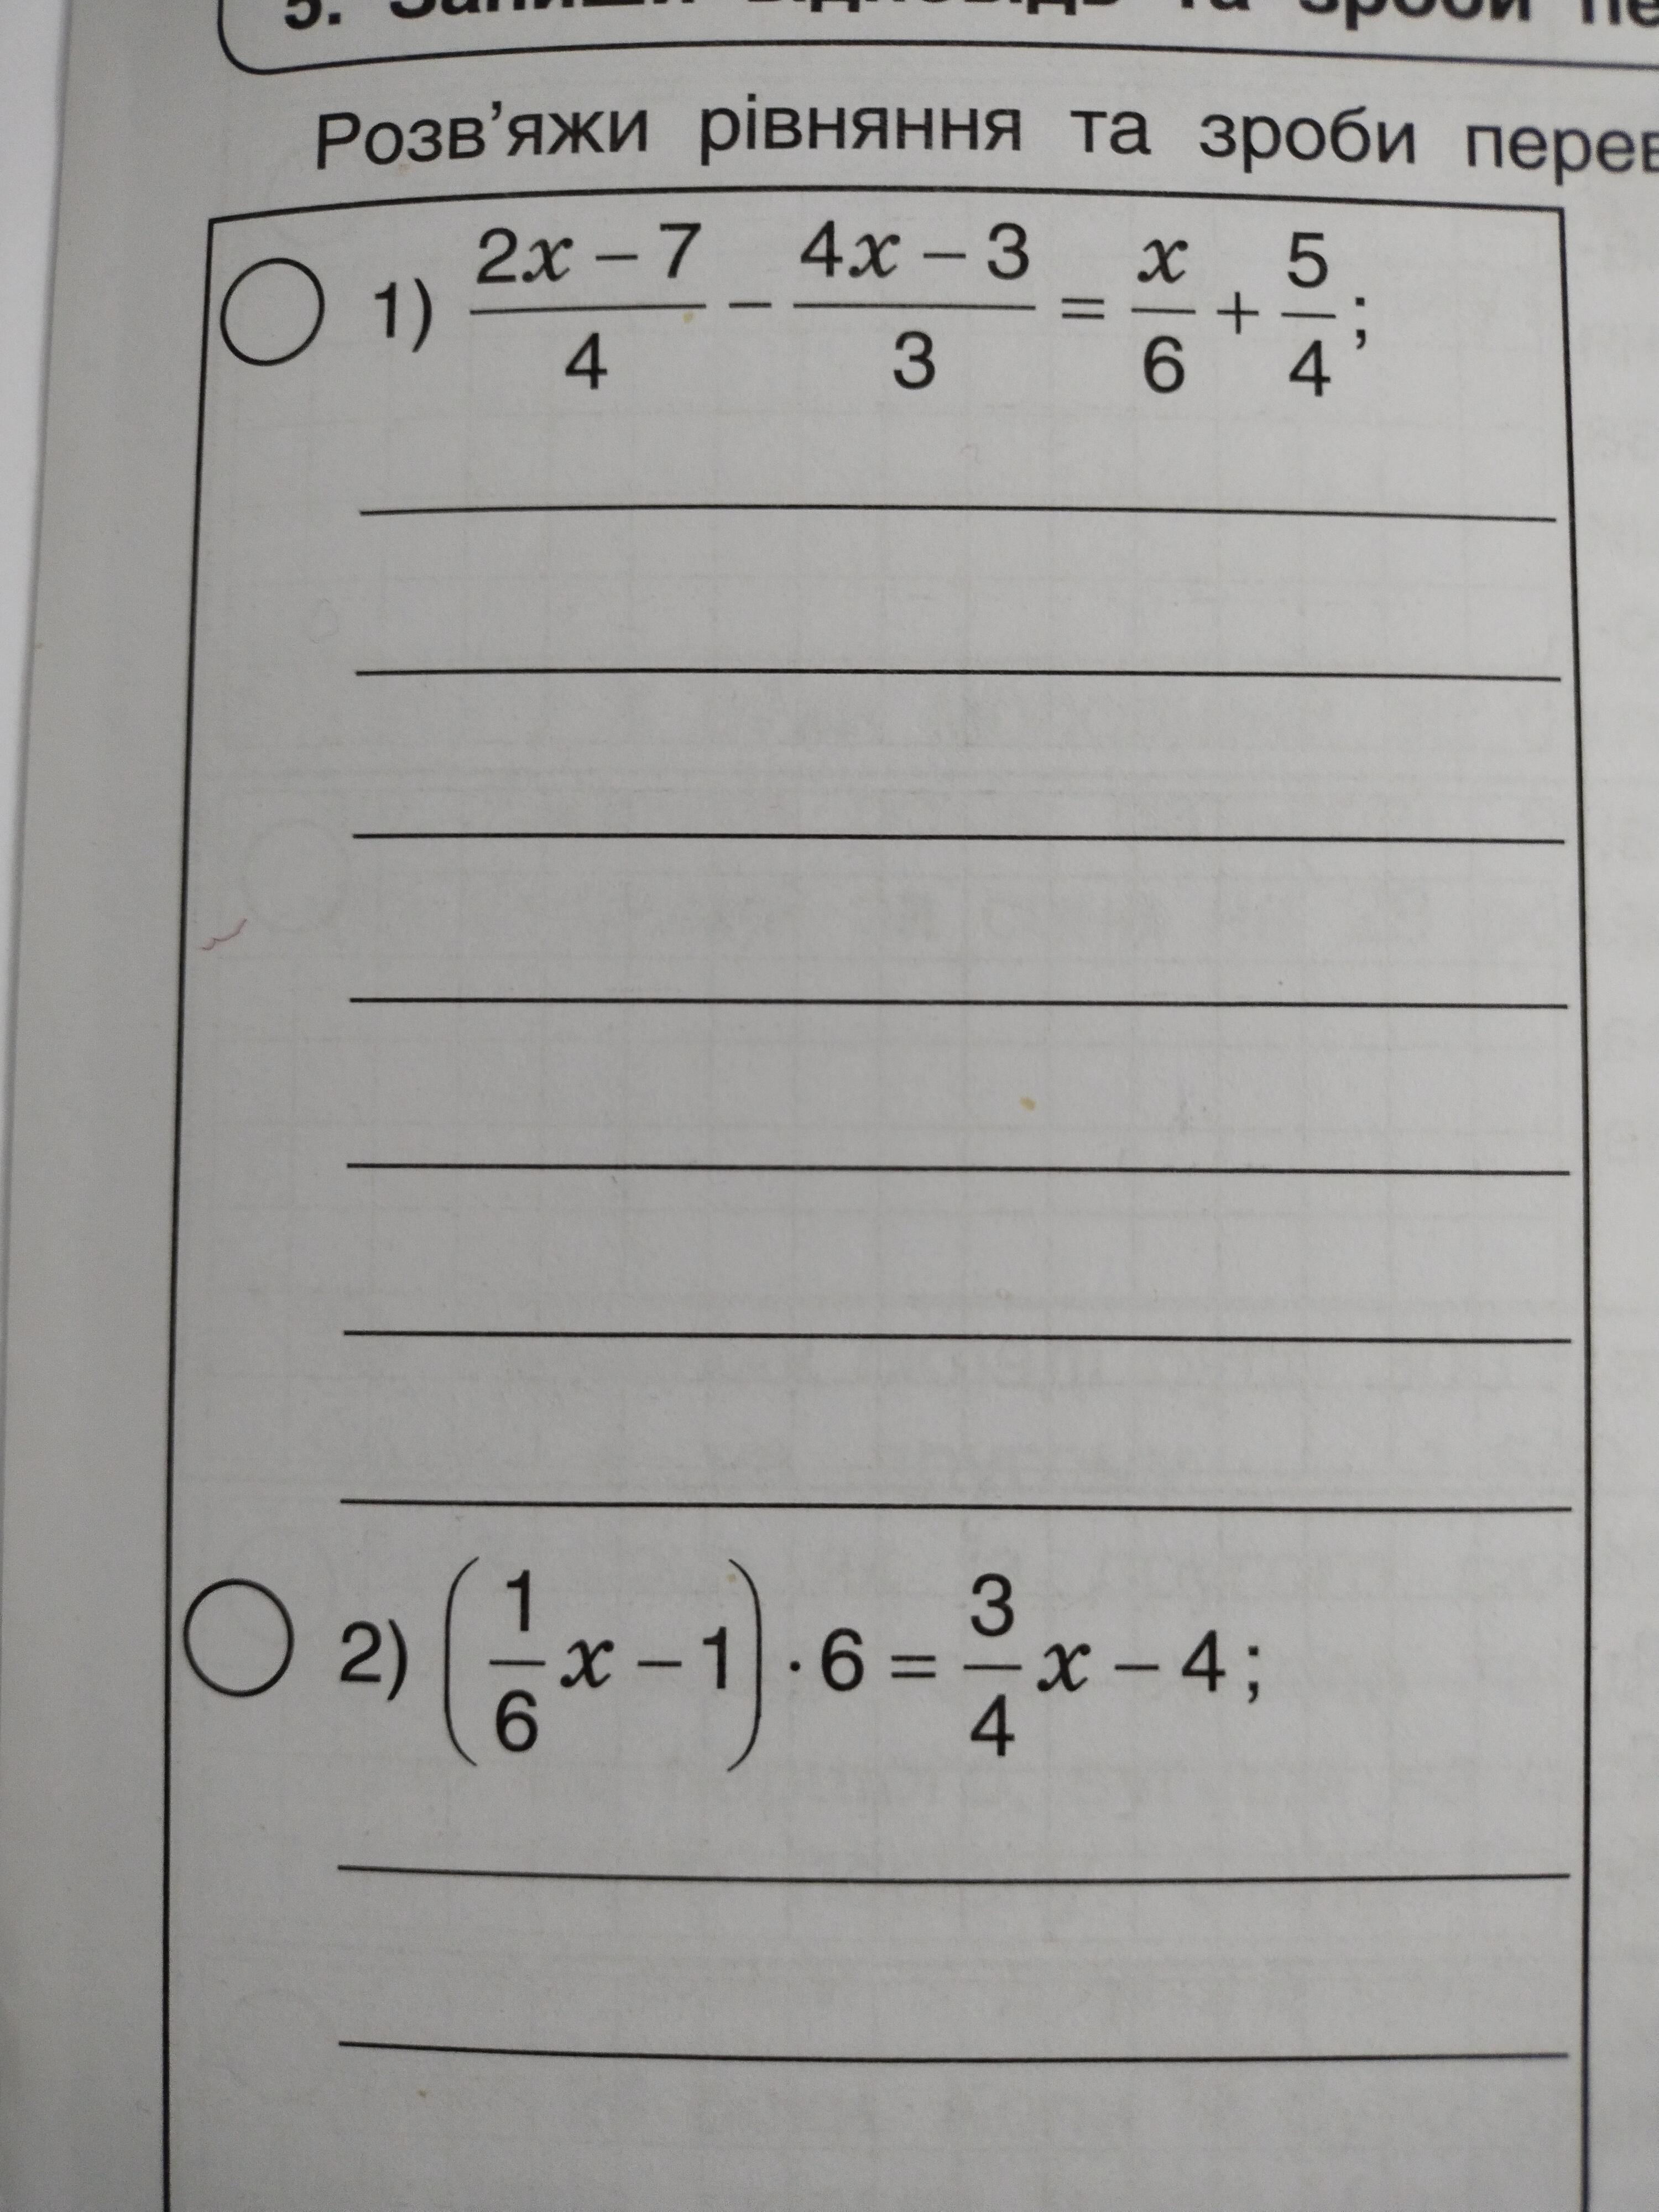 5. Запиши відповідь та зроби
Розв'яжи рівняння та зроби
1) \frac{2x-7}{4} - \frac{4x-3}{3} = \frac{x}{6} + \frac{5}{4};
2) \left( \frac{1}{6}x - 1 \right) \cdot 6 = \frac{3}{4}x - 4;